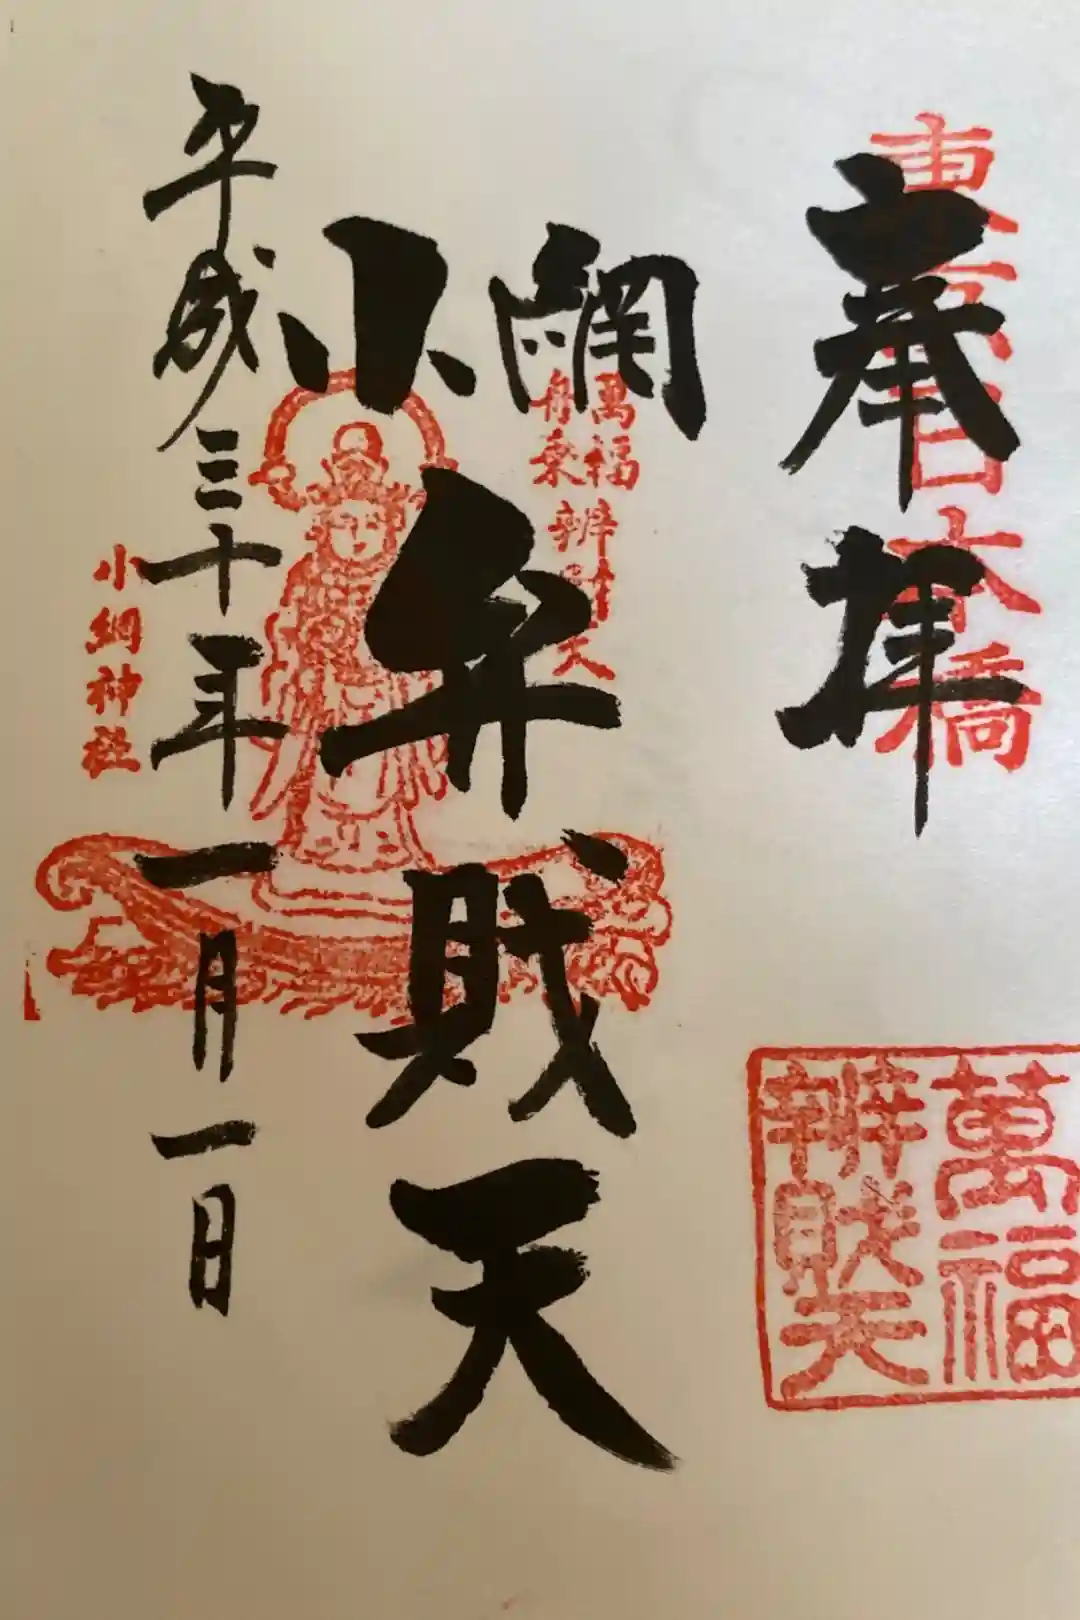 東京日本橋
奉拝
萬福
辨財天
萬福
舟乗
辨財天
小網
弁財天
平成三十年一月一日
小網神社